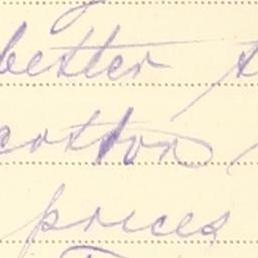 better
cotton
prices